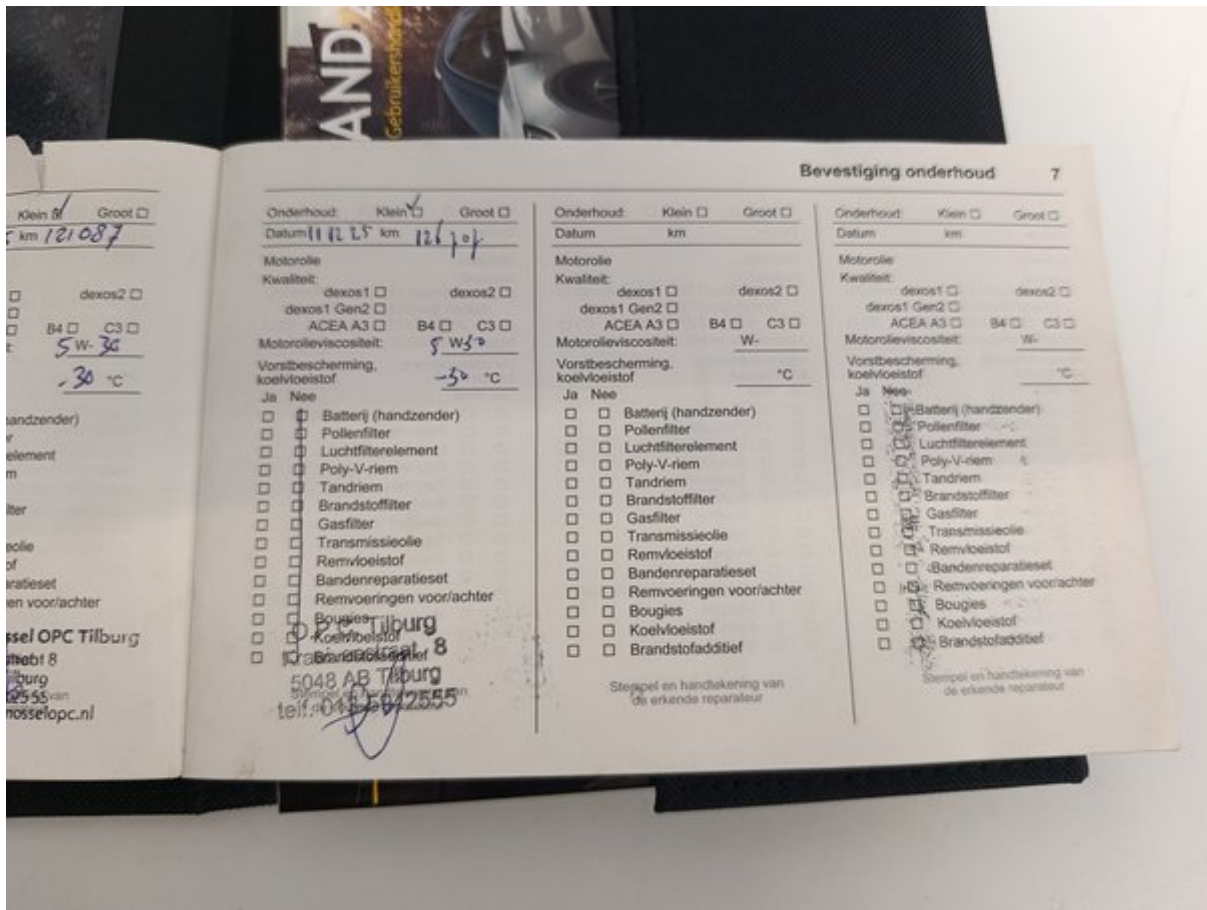 AND
Gebruikershand
Bevestiging onderhoud 7
Klein Groot
km 121087
dexos2
B4 C3
5 W- 30
-30 °C
andzender)
element
olie
of
aratieset
en voor/achter
ssel OPC Tilburg
8
2555
nosselopc.nl
Onderhoud: Klein Groot
Datum 11 12 25 km 126
Motorolie
Kwaliteit:
dexos1 dexos2
dexos1 Gen2
ACEA A3 B4 C3
Motorolieviscositeit: 5 W-30
Vorstbescherming,
koelvloeistof -30 °C
Ja Nee
Batterij (handzender)
Pollenfilter
Luchtfilterelement
Poly-V-riem
Tandriem
Brandstoffilter
Gasfilter
Transmissieolie
Remvloeistof
Bandenreparatieset
Remvoeringen voor/achter
Bougies
Koelvloeistof
Brandstofadditief
O.P.C. Tilburg
8
5048 AB Tilburg
Stempel en handtekening van
telf. 5942555
Onderhoud: Klein Groot
Datum km
Motorolie
Kwaliteit:
dexos1 dexos2
dexos1 Gen2
ACEA A3 B4 C3
Motorolieviscositeit: W-
Vorstbescherming,
koelvloeistof °C
Ja Nee
Batterij (handzender)
Pollenfilter
Luchtfilterelement
Poly-V-riem
Tandriem
Brandstoffilter
Gasfilter
Transmissieolie
Remvloeistof
Bandenreparatieset
Remvoeringen voor/achter
Bougies
Koelvloeistof
Brandstofadditief
Stempel en handtekening van
de erkende reparateur
Onderhoud: Klein Groot
Datum km
Motorolie
Kwaliteit:
dexos1 dexos2
dexos1 Gen2
ACEA A3 B4 C3
Motorolieviscositeit: W-
Vorstbescherming,
koelvloeistof °C
Ja Nee
Batterij (handzender)
Pollenfilter
Luchtfilterelement
Poly-V-riem
Tandriem
Brandstoffilter
Gasfilter
Transmissieolie
Remvloeistof
Bandenreparatieset
Remvoeringen voor/achter
Bougies
Koelvloeistof
Brandstofadditief
Stempel en handtekening van
de erkende reparateur